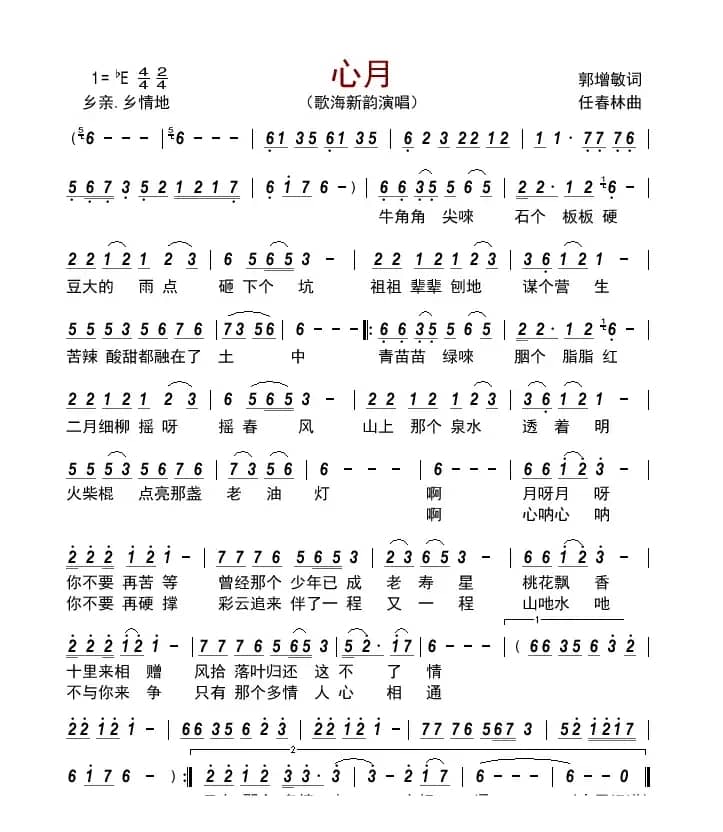 心月
1=♭E 4/4 2/4
郭增敏词
乡亲.乡情地
（歌海新韵演唱）
任春林曲
(6 - - - | 6 - - - | 61 35 61 35 | 6 2 3 22 12 | 1 1· 77 76 |
5 67 3 52 1217 | 6 1 7 6 -) | 6 6 35 5 65 | 22· 1 2 6 - |
牛角角 尖唻 石个 板板 硬
2 2 12 1 2 3 | 6 5 65 3 - | 22 12 12 3 | 36 12 1 - |
豆大的 雨 点 砸 下个 坑 祖祖 辈辈 刨地 谋个营 生
55 53 56 76 | 73 56 | 6 - - - |: 6 6 35 5 65 | 22· 12 6 - |
苦辣 酸甜都融在了 土 中 青苗苗 绿唻 胭个 脂脂 红
22 12 1 23 | 6 5 65 3 - | 22 12 12 3 | 36 12 1 - |
二月细柳 摇 呀 摇 春 风 山上 那个 泉水 透 着 明
55 53 56 76 | 73 56 | 6 - - - | 6 - - - | 66 12 3 - |
火柴棍 点亮那盏 老 油 灯 啊 月呀月 呀
啊 心呐心 呐
22 2 12 1 - | 77 76 5 65 3 | 23 65 3 - | 66 12 3 - |
你不要 再苦 等 曾经那个 少年已 成 老 寿 星 桃花飘 香
你不要 再硬 撑 彩云追来 伴了一 程 又 一 程 山吔水 吔
1
22 22 12 1 - | 77 76 5 65 3 | 52· 17 | 6 - - - | (66 35 6 32 |
十里来相 赠 风拾 落叶归还 这 不 了 情
不与你来 争 只有 那个多情 人 心 相 通
22 12 1 - | 66 35 6 2 3 | 22 12 1 - | 77 76 567 3 | 52 1217 |
2
6 17 6 - ) :| 22 12 3 3· 3 | 3 - 2 17 | 6 - - - | 6 - - 0 |